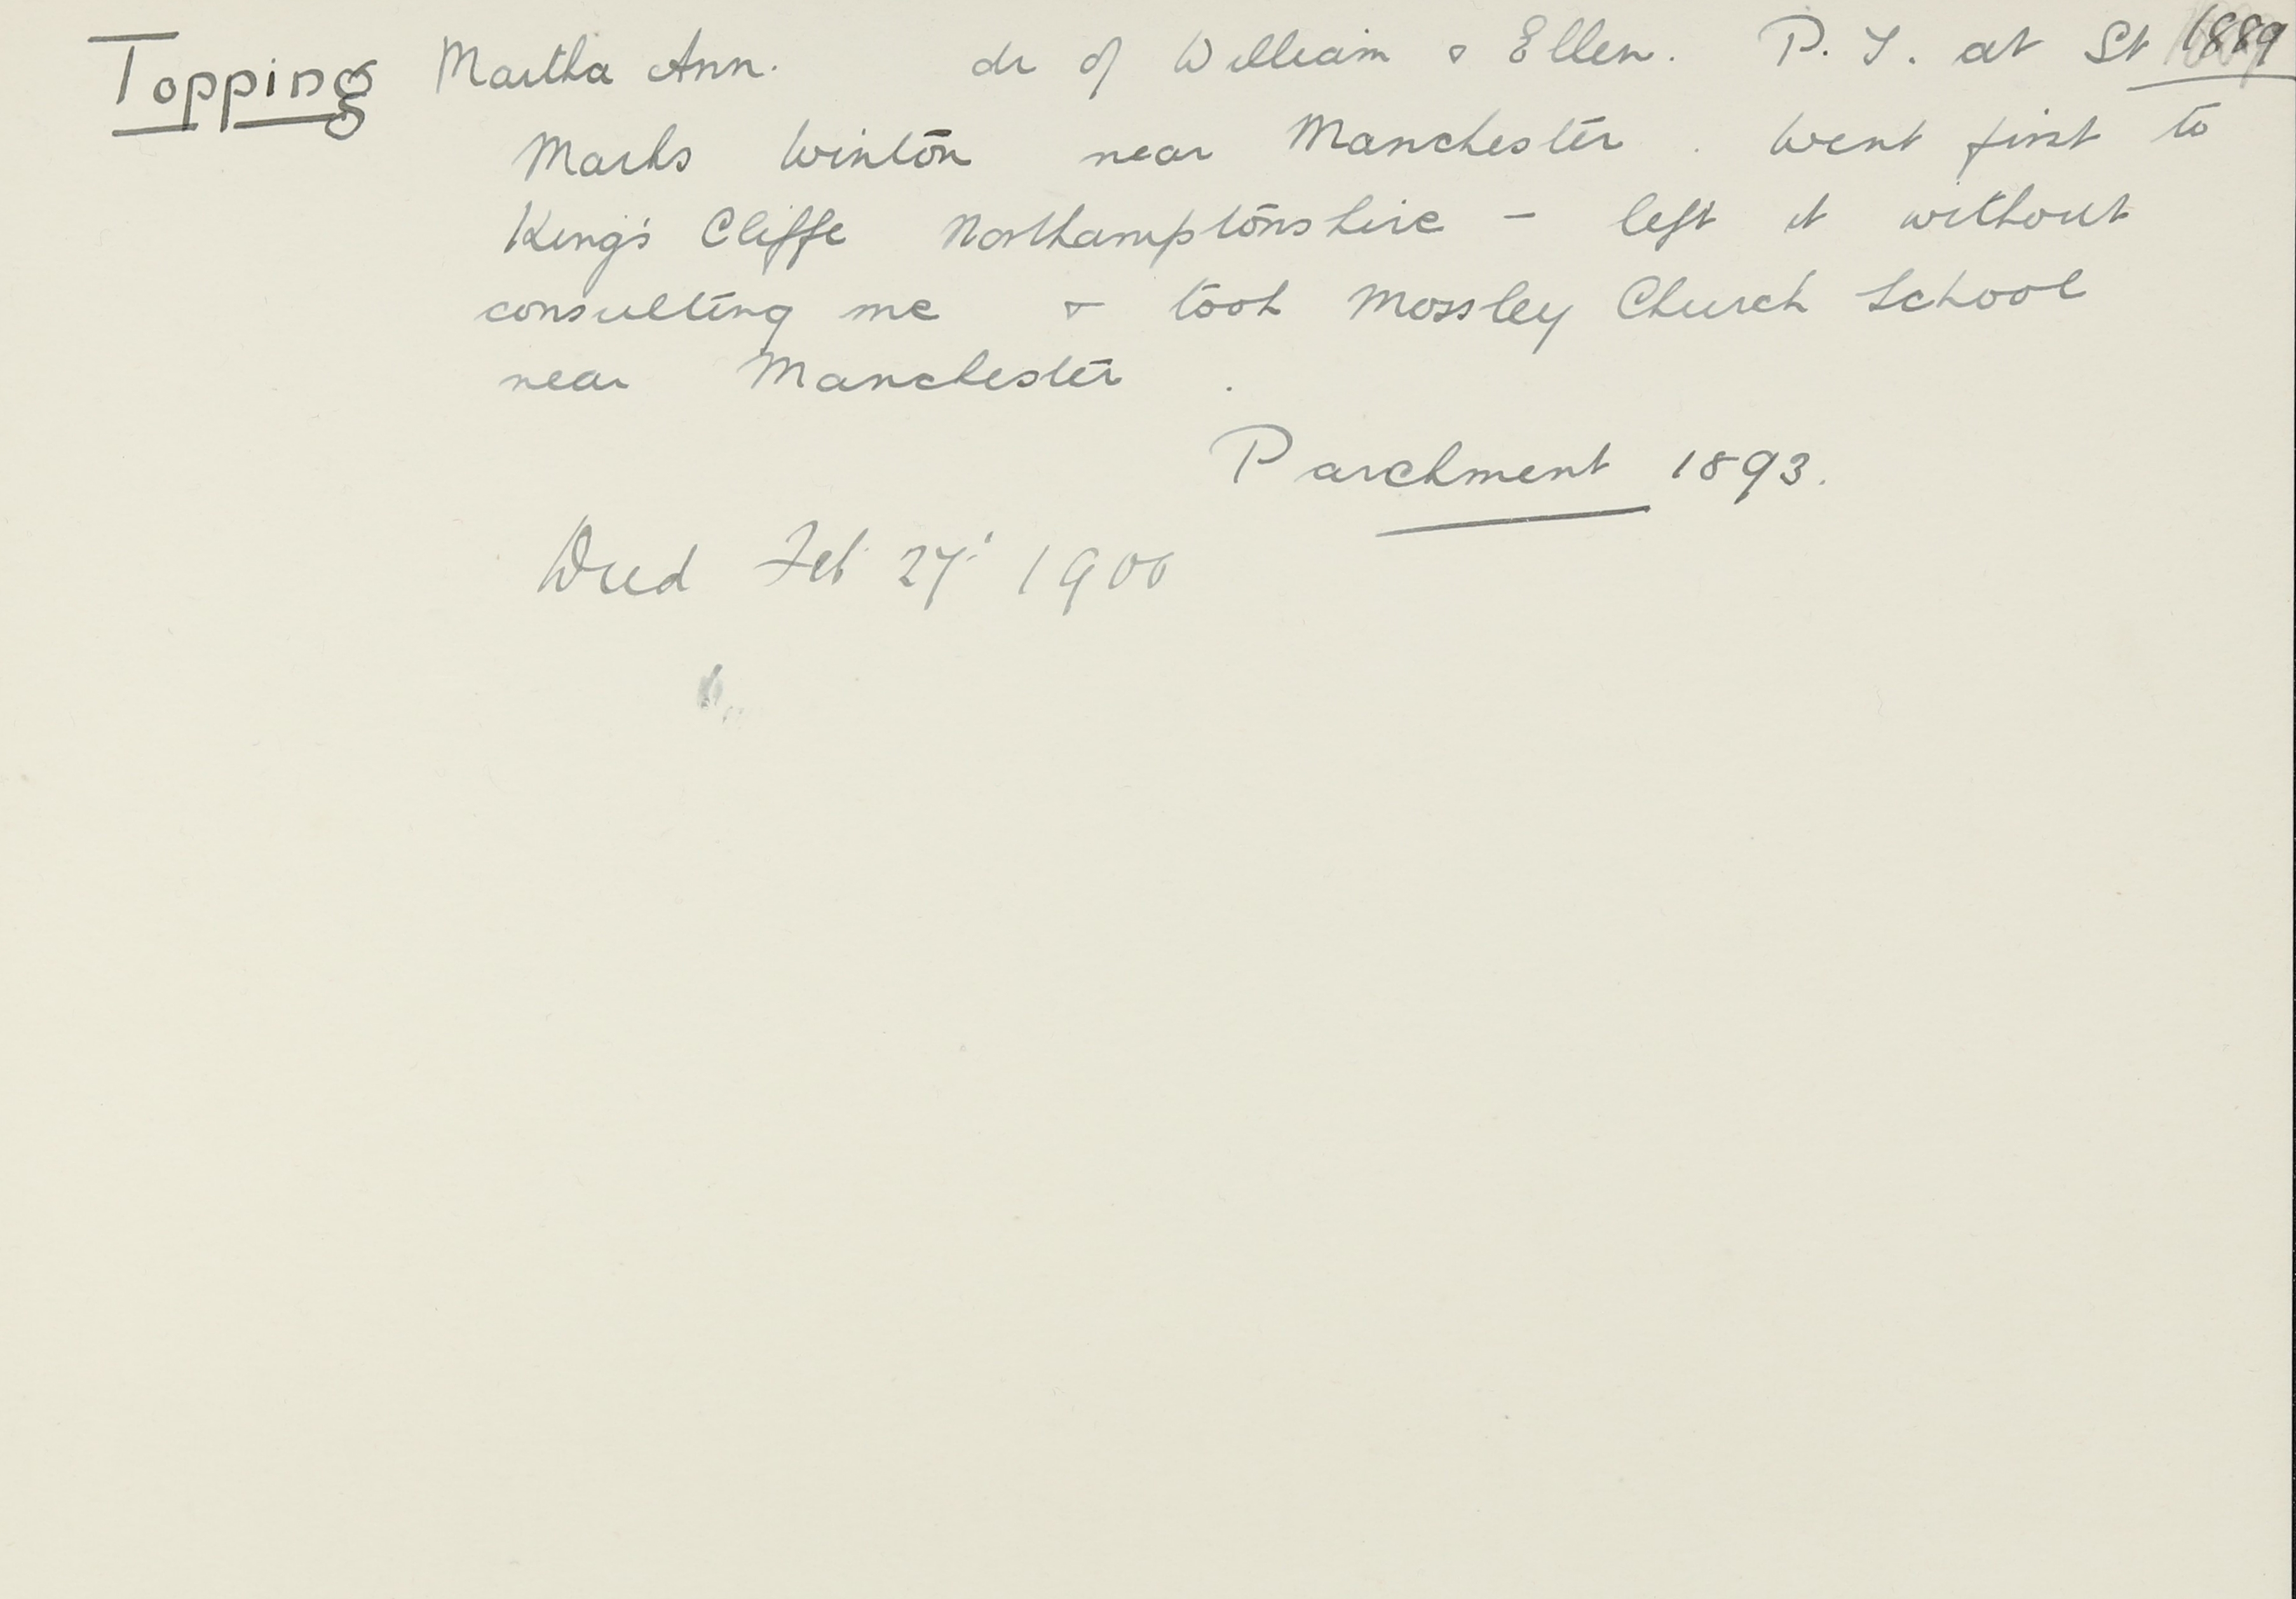 Topping Martha Ann. dr of William & Ellen. P.T. at St 1889
Marks Winton near Manchester. Went first to
King's Cliffe Northamptonshire - left it without
consulting me & took Mossley Church School
near Manchester.
Parchment 1893.
Died Feb 27: 1900